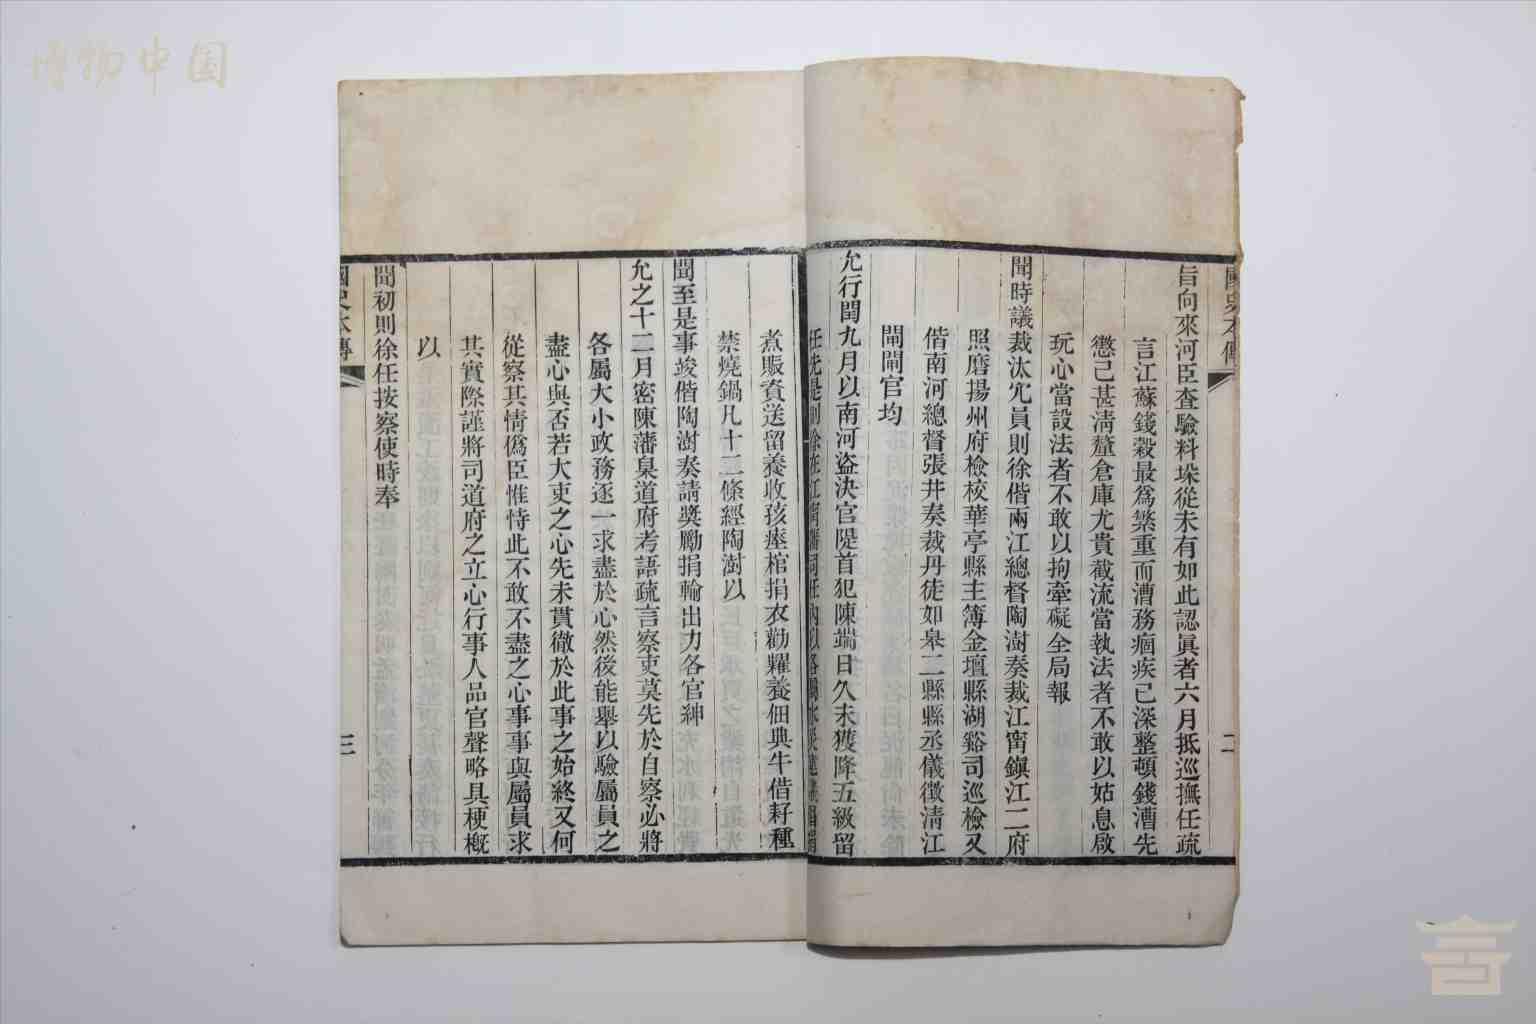 博物中国
國史本傳
二
旨向來河臣查驗料垛從未有如此認眞者六月抵巡撫任疏
言江蘇錢穀最爲繁重而漕務痼疾已深整頓錢漕先
懲己甚淸釐倉庫尤貴截流當執法者不敢以姑息啟
玩心當設法者不敢以拘牽礙全局報
聞時議裁汰冗員則徐偕兩江總督陶澍奏裁江甯鎭江二府
照磨揚州府檢校華亭縣主簿金壇縣湖谿司巡檢又
偕南河總督張井奏裁丹徒如皋二縣縣丞儀徵淸江
閘閘官均
允行閏九月以南河盜決官隄首犯陳端日久未獲降五級留
任先是則徐在江甯藩司任內以各屬水災建議倡捐
煮賑資送留養收孩瘞棺捐衣勸糶養佃典牛借籽種
禁燒鍋凡十二條經陶澍以
聞至是事竣偕陶澍奏請奬勵捐輸出力各官紳
允之十二月密陳藩臬道府考語疏言察吏莫先於自察必將
各屬大小政務逐一求盡於心然後能舉以驗屬員之
盡心與否若大吏之心先未貫徹於此事之始終又何
從察其情僞臣惟恃此不敢不盡之心事事與屬員求
其實際謹將司道府之立心行事人品官聲略具梗概
以
聞初則徐任按察使時奉
國史本傳
三